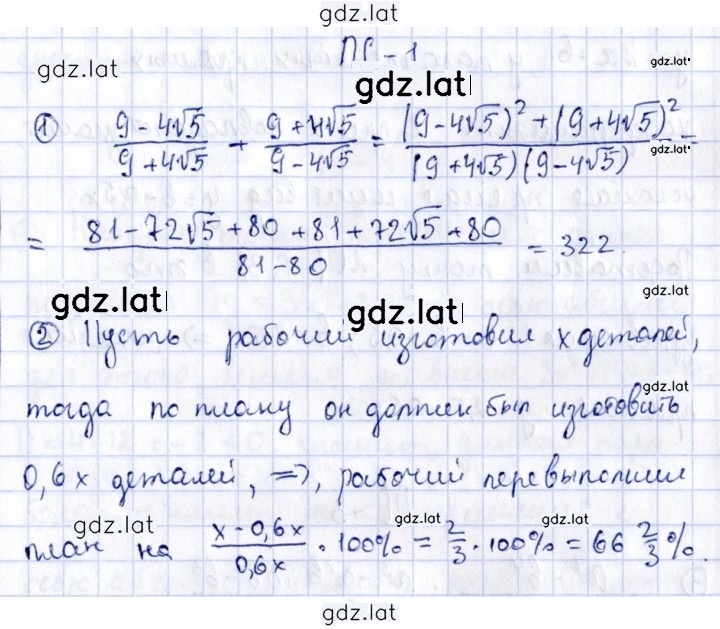 gdz.lat
ПР - 1
gdz.lat
gdz.lat
gdz.lat
① (9 - 4√5)/(9 + 4√5) + (9 + 4√5)/(9 - 4√5) = ((9 - 4√5)² + (9 + 4√5)²)/((9 + 4√5)(9 - 4√5)) =
gdz.lat
= (81 - 72√5 + 80 + 81 + 72√5 + 80)/(81 - 80) = 322.
gdz.lat
gdz.lat
gdz.lat
② Пусть рабочий изготовил x деталей,
тогда по плану он должен был изготовить
gdz.lat
0,6x деталей, =>, рабочий перевыполнил
gdz.lat
gdz.lat
gdz.lat
план на (x - 0,6x)/(0,6x) · 100% = 2/3 · 100% = 66 2/3 %.
gdz.lat